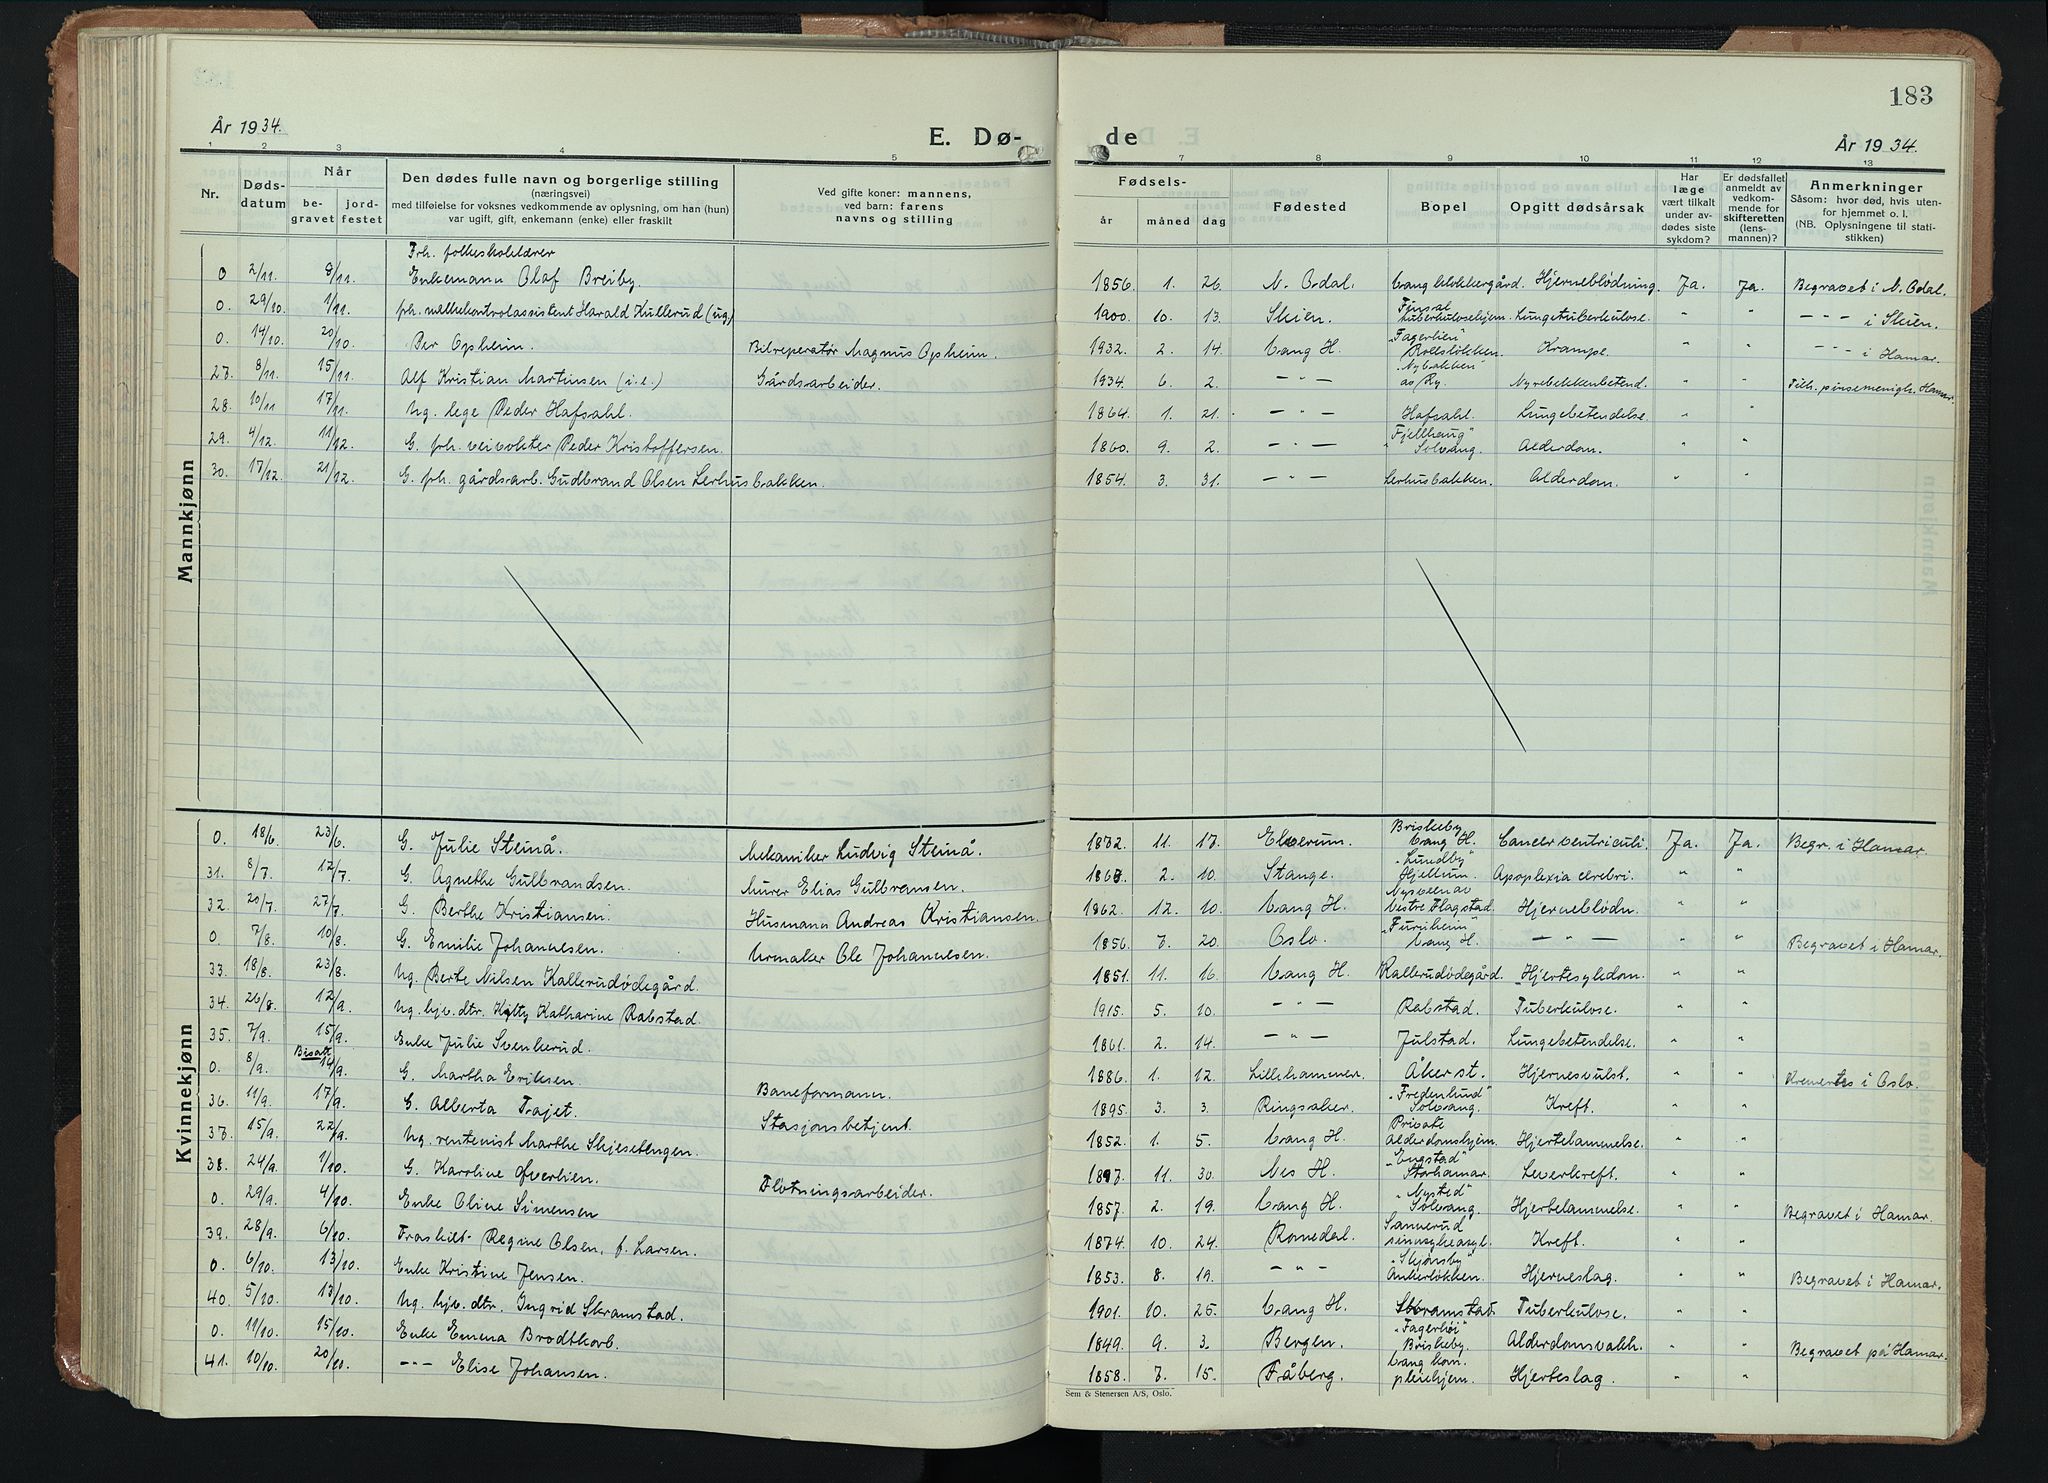 183
År 1934.
E. Dø-
de
År 1934.
1 2 3 4 5 7 8 9 10 11 12 13
Nr.
Dødsdatum
Når
begravet
jordfestet
Den dødes fulle navn og borgerlige stilling
(næringsvei)
med tilføielse for voksnes vedkommende av oplysning, om han (hun)
var ugift, gift, enkemann (enke) eller fraskilt
Ved gifte koner: mannens,
ved barn: farens
navns og stilling
Fødsels-
år måned dag
Fødested
Bopel
Opgitt dødsårsak
Har
læge
vært tilkalt
under av-
dødes siste
sykdom?
Er dødsfallet
anmeldt av
vedkom-
mende for
skifteretten
(lens-
mannen)?
Anmerkninger
Såsom: hvor død, hvis uten-
for hjemmet o. l.
(NB. Oplysningene til stati-
stikken)
Mannkjønn
Frh. folkeskolelærer
0 2/11. 8/11. Enkemann Olaf Breiby. 1856. 1. 26. N. Odal. Vang klokkergård. Hjerneblødning. Ja. Ja. Begravet i N. Odal.
Furset
0. 29/10. 1/11. fh. melkekontrolassistent Harald Kullerud (ug.) 1900. 10. 13. Skien. tuberkulosehjem. Lungetuberkulose. " " — " — i Skien.
"Fagerlien"
0. 14/10. 20/10. Per Opheim. Bilreperatør Magnus Opheim. 1932. 2. 14. Vang H. Rollsløkken. Krampe. " " — " — i Hamar.
"Nybakken"
27. 8/11. 15/11. Alf Kristian Martinsen (i.e.) Gårdsarbeider. 1934. 6. 2. — " — av Ry. Nyrebekkenbetend. " " Tilh. pinsemenigh. Hamar.
28. 10/11 17/11. Ug. lege Peder Hafsahl. 1864. 1. 21. — " — Hafsahl. Lungebetendelse. " "
"Fjellhaug"
29. 4/12. 11/12. G. fh. veivokter Peder Kristoffersen. 1860. 9. 2. — " — Solvang. Alderdom. " "
30. 17/12. 21/12. G. fh. gårdsarb. Gudbrand Olsen Lerhusbakken. 1854. 3. 31. — " — Lerhusbakken. Alderdom. " "
Kvinnekjønn
Briskeby
0. 18/6. 23/6. G. Julie Steinå. Mekaniker Ludvig Steinå. 1872. 11. 17. Elverum. Vang H. Cancer ventriculi. Ja. Ja. Begr. i Hamar
"Lundby"
31. 8/7. 12/7. G. Agnethe Gulbrandsen. Murer Elias Gulbransen. 1863. 2. 10. Stange. Hjellum. Apoplexia cerebri. " "
Nysveen av
32. 20/7. 27/7. G. Berthe Kristiansen. Husmann Andreas Kristiansen. 1862. 12. 10. Vang H. Vestre Flagstad. Hjerneblødn. " "
"Furuheim"
0. 7/8. 10/8. G. Emilie Johannesen. Urmaker Ole Johannesen. 1856. 7. 20. Oslo. Vang H. — " — " " Begravet i Hamar.
33. 18/8. 23/8. Ug. Berte Nilsen Kallerudødegård 1851. 11. 16. Vang H. Kallerudødegård. Hjertesykdom. " "
34. 26/8 12/9. Ug. hjv. dtr. Kitty Katharine Rabstad. 1915. 5. 10. — " — Rabstad. Tuberkulose. " "
35. 7/9. 15/9. Enke Julie Svenkerud. 1861. 2. 14. — " — Julstad. Lungebetendelse. " "
Bisatt
0. 8/9. 14/9. G. Martha Eriksen. Baneformann. 1886. 1. 12. Lillehammer. Åkerst. Hjernesvulst. " " Kremertes i Oslo.
"Fredenlund"
36. 11/9. 17/9. G. Alberta Trajet. Stasjonsbetjent. 1895. 3. 3. Ringsaker. Solvang. Kreft. " "
Private
37. 15/9. 22/9. Ug. rentenist Marthe Skjesetengen. 1852. 1. 5. Vang H. Alderdomshjem. Hjertelammelse. " "
"Engstad"
38. 24/9. 1/10. G. Karoline Øverlien. Fløtningsarbeider. 11. 30. Nes H. Storhamar. Leverkreft. " "
"Nysted"
0. 29/9. 4/10. Enke Oline Simensen 1857. 2. 19. Vang H. Solvang. Hjertelammelse. " " Begravet i Hamar.
Sannerud
39. 28/9. 6/10. Fraskilt. Regine Olsen, f. Larsen. 1874. 10. 24. Romedal. sinnsykeasyl. Kreft. " "
"Skjønsby"
0. 6/10. 13/10. Enke Kristine Jensen. 1853. 8. 19. — " — Ankerløkken. Hjerneslag. " " Begravet i Hamar.
40. 5/10. 13/10. Ug. hjv. dtr. Ingrid Skramstad. 1901. 10. 25. Vang H. Skramstad. Tuberkulose. " "
"Fagerhøi"
0. 11/10. 15/10. Enke Emma Brodtkorb. 1849. 9. 3. Bergen. Briskeby. Alderdomsvakh. " " Begravet på Hamar.
Vang kom.
41. 10/10. 20/10. — " — Elise Johansen. 1858. 7. 15. Fåberg. pleiehjem. Hjerteslag. " "
Sem & Stenersen A/S, Oslo.